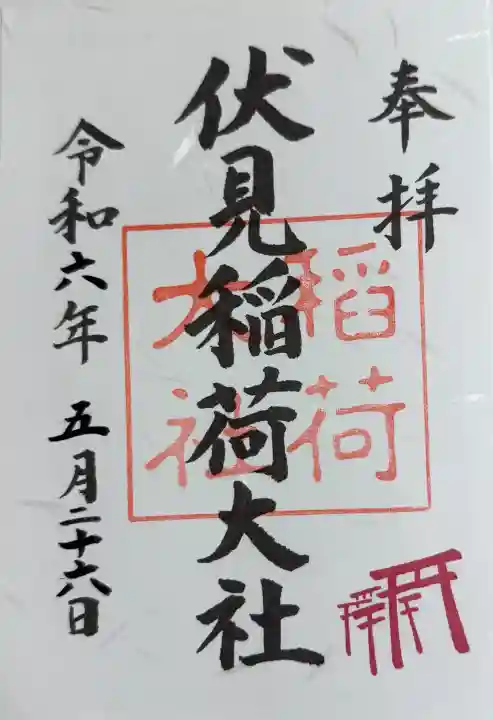 奉拝
伏見稲荷大社
稲荷
大社
令和六年 五月二十六日